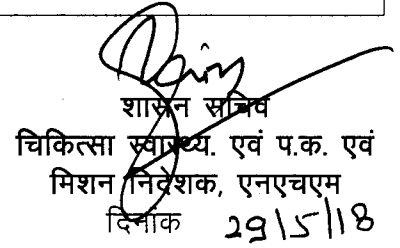 शासन सचिव
चिकित्सा स्वास्थ्य. एवं प.क. एवं
मिशन निदेशक, एनएचएम
दिनांक 29/5/18